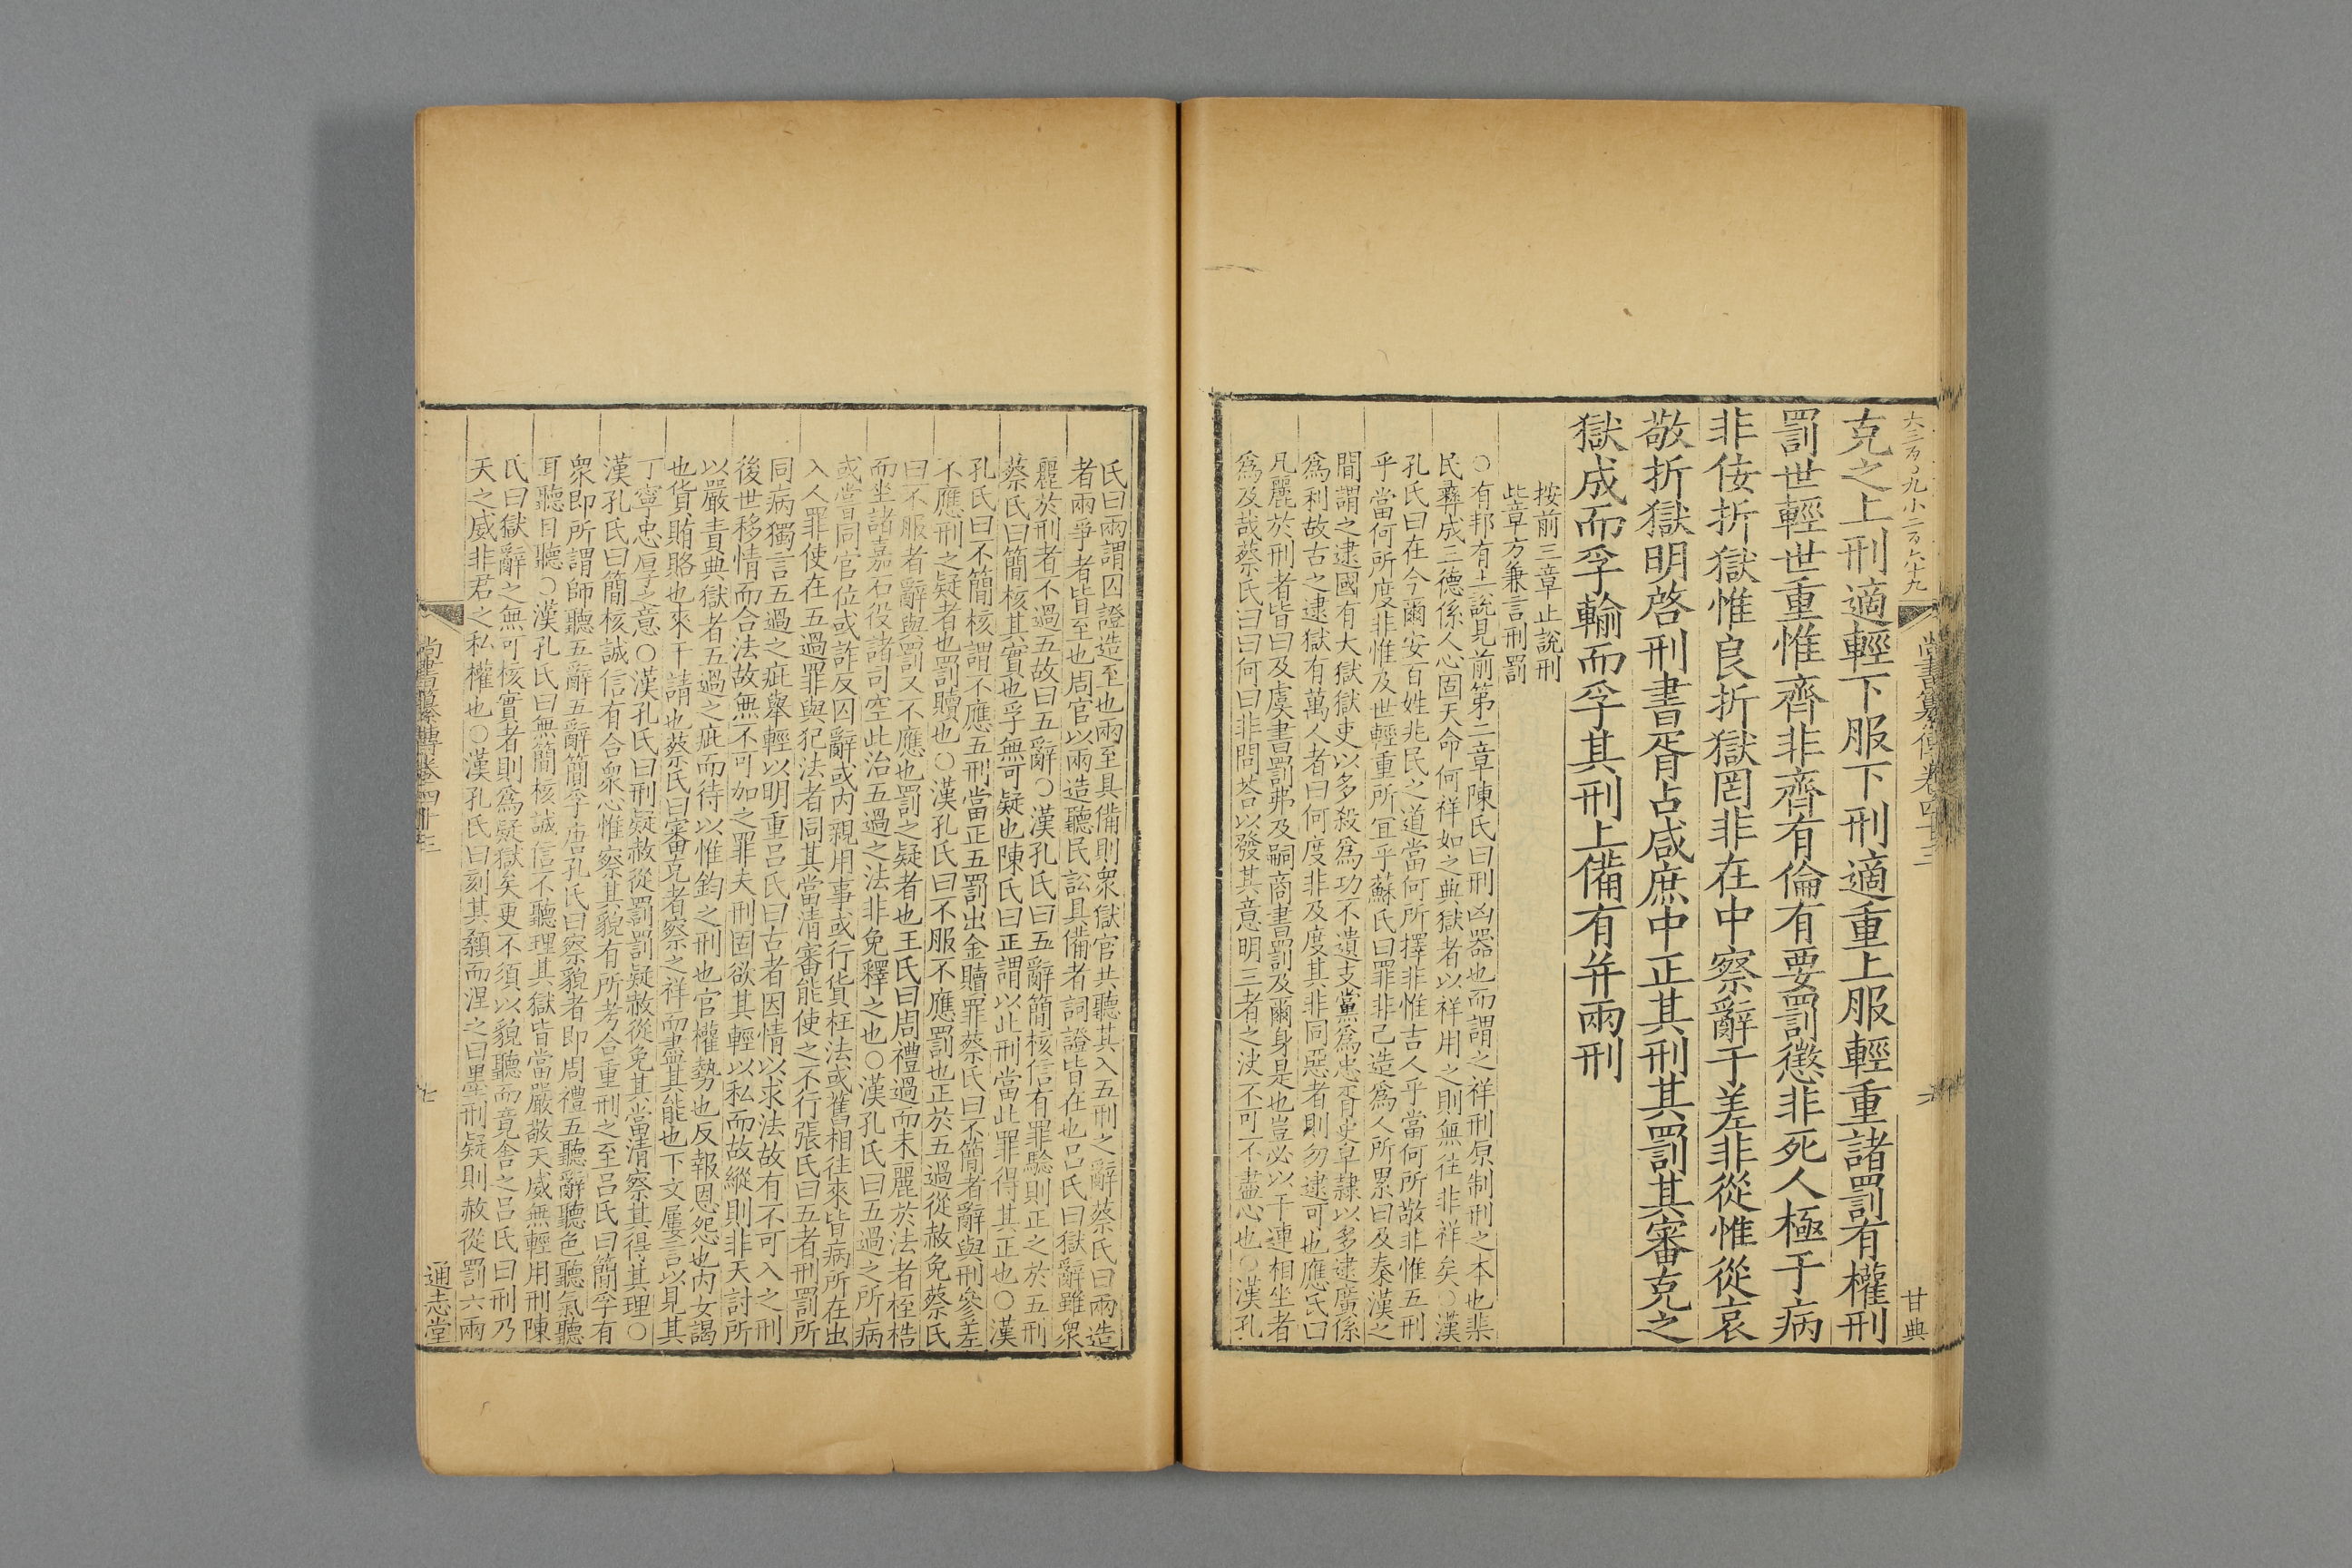 克之上刑適輕下服下刑適重上服輕重諸罰有權刑
罰世輕世重惟齊非齊有倫有要罰懲非死人極于病
非佞折獄惟良折獄罔非在中察辭于差非從惟從哀
敬折獄明啓刑書胥占咸庶中正其刑其罰其審克之
獄成而孚輸而孚其刑上備有并兩刑
按前三章止說刑
此章方兼言刑罰
○有邦有土說見前第二章陳氏曰刑凶器也而謂之祥刑原制刑之本也棐
民彝成三德係人心固天命何祥如之典獄者以祥用之則無往非祥矣○漢
孔氏曰在今爾安百姓兆民之道當何所擇非惟吉人乎當何所敬非惟五刑
乎當何所度非惟及世輕重所宜乎蘇氏曰罪非己造爲人所累曰及秦漢之
間謂之逮國有大獄獄吏以多殺爲功不遺支黨爲忠胥史皁隷以多逮廣係
爲利故古之逮獄有萬人者曰何度非及度其非同惡者則勿逮可也應氏曰
凡麗於刑者皆曰及虞書罰弗及嗣商書罰及爾身是也豈必以干連相坐者
爲及哉蔡氏曰曰何曰非問荅以發其意明三者之決不可不盡心也○漢孔
氏曰兩謂囚證造至也兩至具備則衆獄官共聽其入五刑之辭蔡氏曰兩造
者兩爭者皆至也周官以兩造聽民訟具備者詞證皆在也呂氏曰獄辭雖衆
麗於刑者不過五故曰五辭○漢孔氏曰五辭簡核信有罪驗則正之於五刑
蔡氏曰簡核其實也孚無可疑也陳氏曰正謂以此刑當此罪得其正也○漢
孔氏曰不簡核謂不應五刑當正五罰出金贖罪蔡氏曰不簡者辭與刑參差
不應刑之疑者也罰贖也○漢孔氏曰不服不應罰也正於五過從赦免蔡氏
曰不服者辭與罰又不應也罰之疑者也王氏曰周禮過而未麗於法者桎梏
而坐諸嘉石役諸司空此治五過之法非免釋之也○漢孔氏曰五過之所病
或嘗同官位或詐反囚辭或内親用事或行貨枉法或舊相往來皆病所在出
入人罪使在五過罪與犯法者同其當清審能使之不行張氏曰五者刑罰所
同病獨言五過之疵舉輕以明重呂氏曰古者因情以求法故有不可入之刑
後世移情而合法故無不可加之罪夫刑固欲其輕以私而故縱則非天討所
以嚴責典獄者五過之疵而待以惟鈞之刑也官權勢也反報恩怨也内女謁
也貨賄賂也來干請也蔡氏曰審克者察之祥而盡其能也下文屢言以見其
丁寧忠厚之意○漢孔氏曰刑疑赦從罰罰疑赦從免其當清察其得其理○
漢孔氏曰簡核誠信有合衆心惟察其貌有所考合重刑之至呂氏曰簡孚有
衆即所謂師聽五辭五辭簡孚唐孔氏曰察貌者即周禮五聽辭聽色聽氣聽
耳聽目聽○漢孔氏曰無簡核誠信不聽理其獄皆當嚴敬天威無輕用刑陳
氏曰獄辭之無可核實者則爲疑獄矣更不須以貌聽而竟舍之呂氏曰刑乃
天之威非君之私權也○漢孔氏曰刻其顙而涅之曰墨刑疑則赦從罰六兩
尚書纂傳卷四十三
七
通志堂
甘典